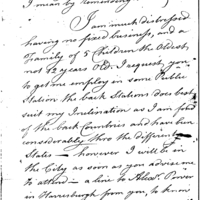 I mean by remembering
I am much distressed
having no fixed business, and a
Family of 5 Children the Oldest
not 12 years Old. I request you
to get me employ in some Public
Station the back Stations does best
suit my Inclination as I am fond
of the back Countries and have been
considerably thro the different
States — however I will be in
the City as soon as you advise me
to attend — a line to Alexr. Power
in Harrisburgh from you, to know